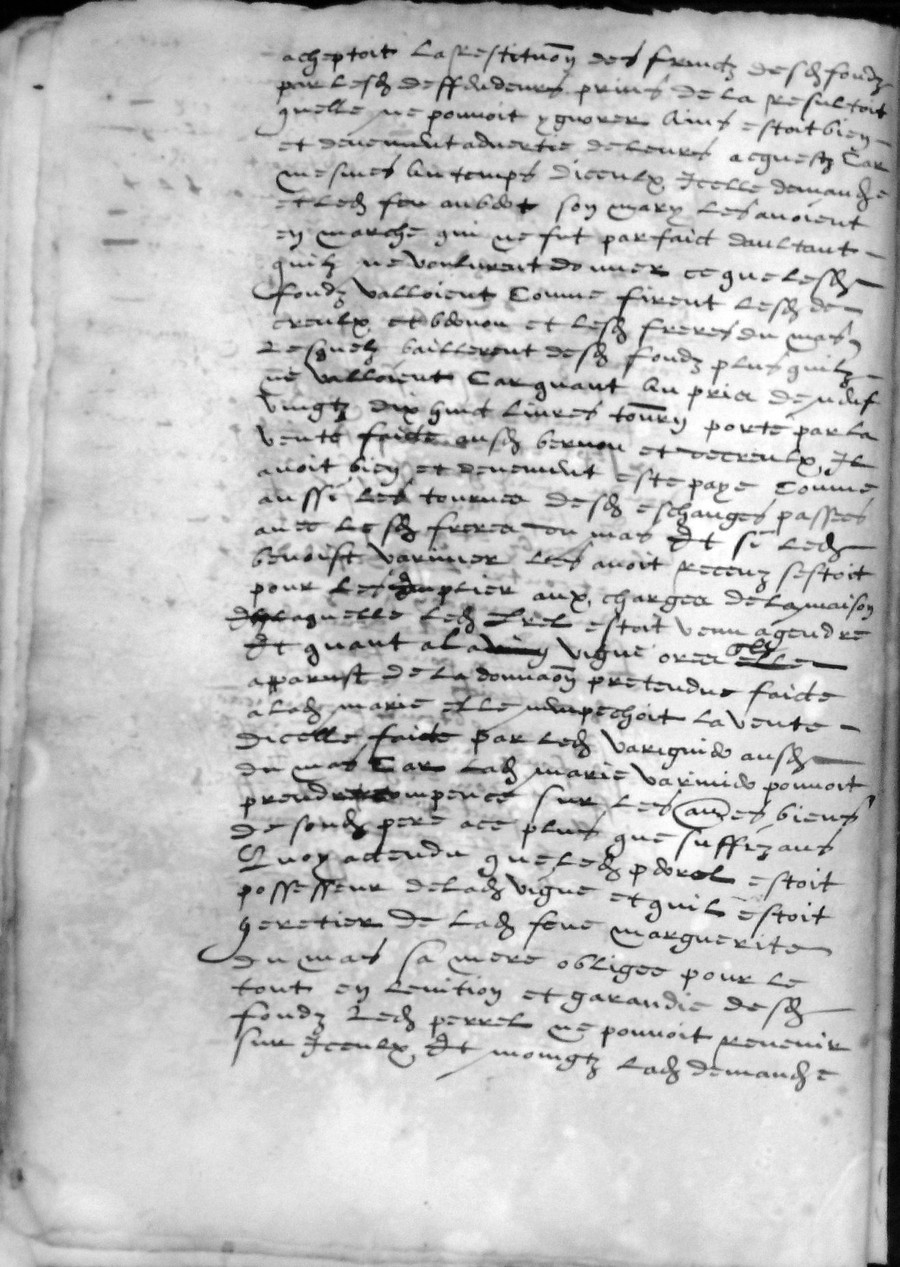 acheptoit la restituon des fruictz desd fondz
par lesd deffendeurs prins de la resultoit
quelle ne pouvoit ygnorer ains estoit bien
et deuement advertie de leurs acquestz Car
mesmes au temps diceulx Icelle demande
et led feu son mary les avoient
en marche qui ne fut parfaict daultant
quilz ne voulurent donner ce que lesd
fondz valloient Comme firent lesd de
creulx et bernon et lesd freres du mas
Lesquelz baillerent desd fondz plus quilz
ne valloient Car quant au pris de neuf
vingtz dix huict livres tourn porte par la
vente faicte ausd bernon et decreulx Il
avoit bien et deuement este paye Comme
aussi les tournes desd eschanges passees
avec lesd freres du mas Et si led
benoist varinier les avoit receuz sestoit
pour les emplier aux charges de la maison
de laquelle led estoit venu agendre
Et quant a la vigne ores
apparust de la donnaon pretendue faicte
a lad marie elle nempechoit la vente
dicelle faicte par led ausd
du mas Car lad marie pouvoit
prendre recompence sur les aues biens
de sond pere a ce plus que suffizans
Quoy actendu que led estoit
possesseur de lad vigne et quil estoit
heretier de lad feue marguerite
du mas sa mere obligee pour le
tout en levition et garandie desd
fondz Led perrel ne pouvoit revenir
sur Iceulx Et moingtz lad demande